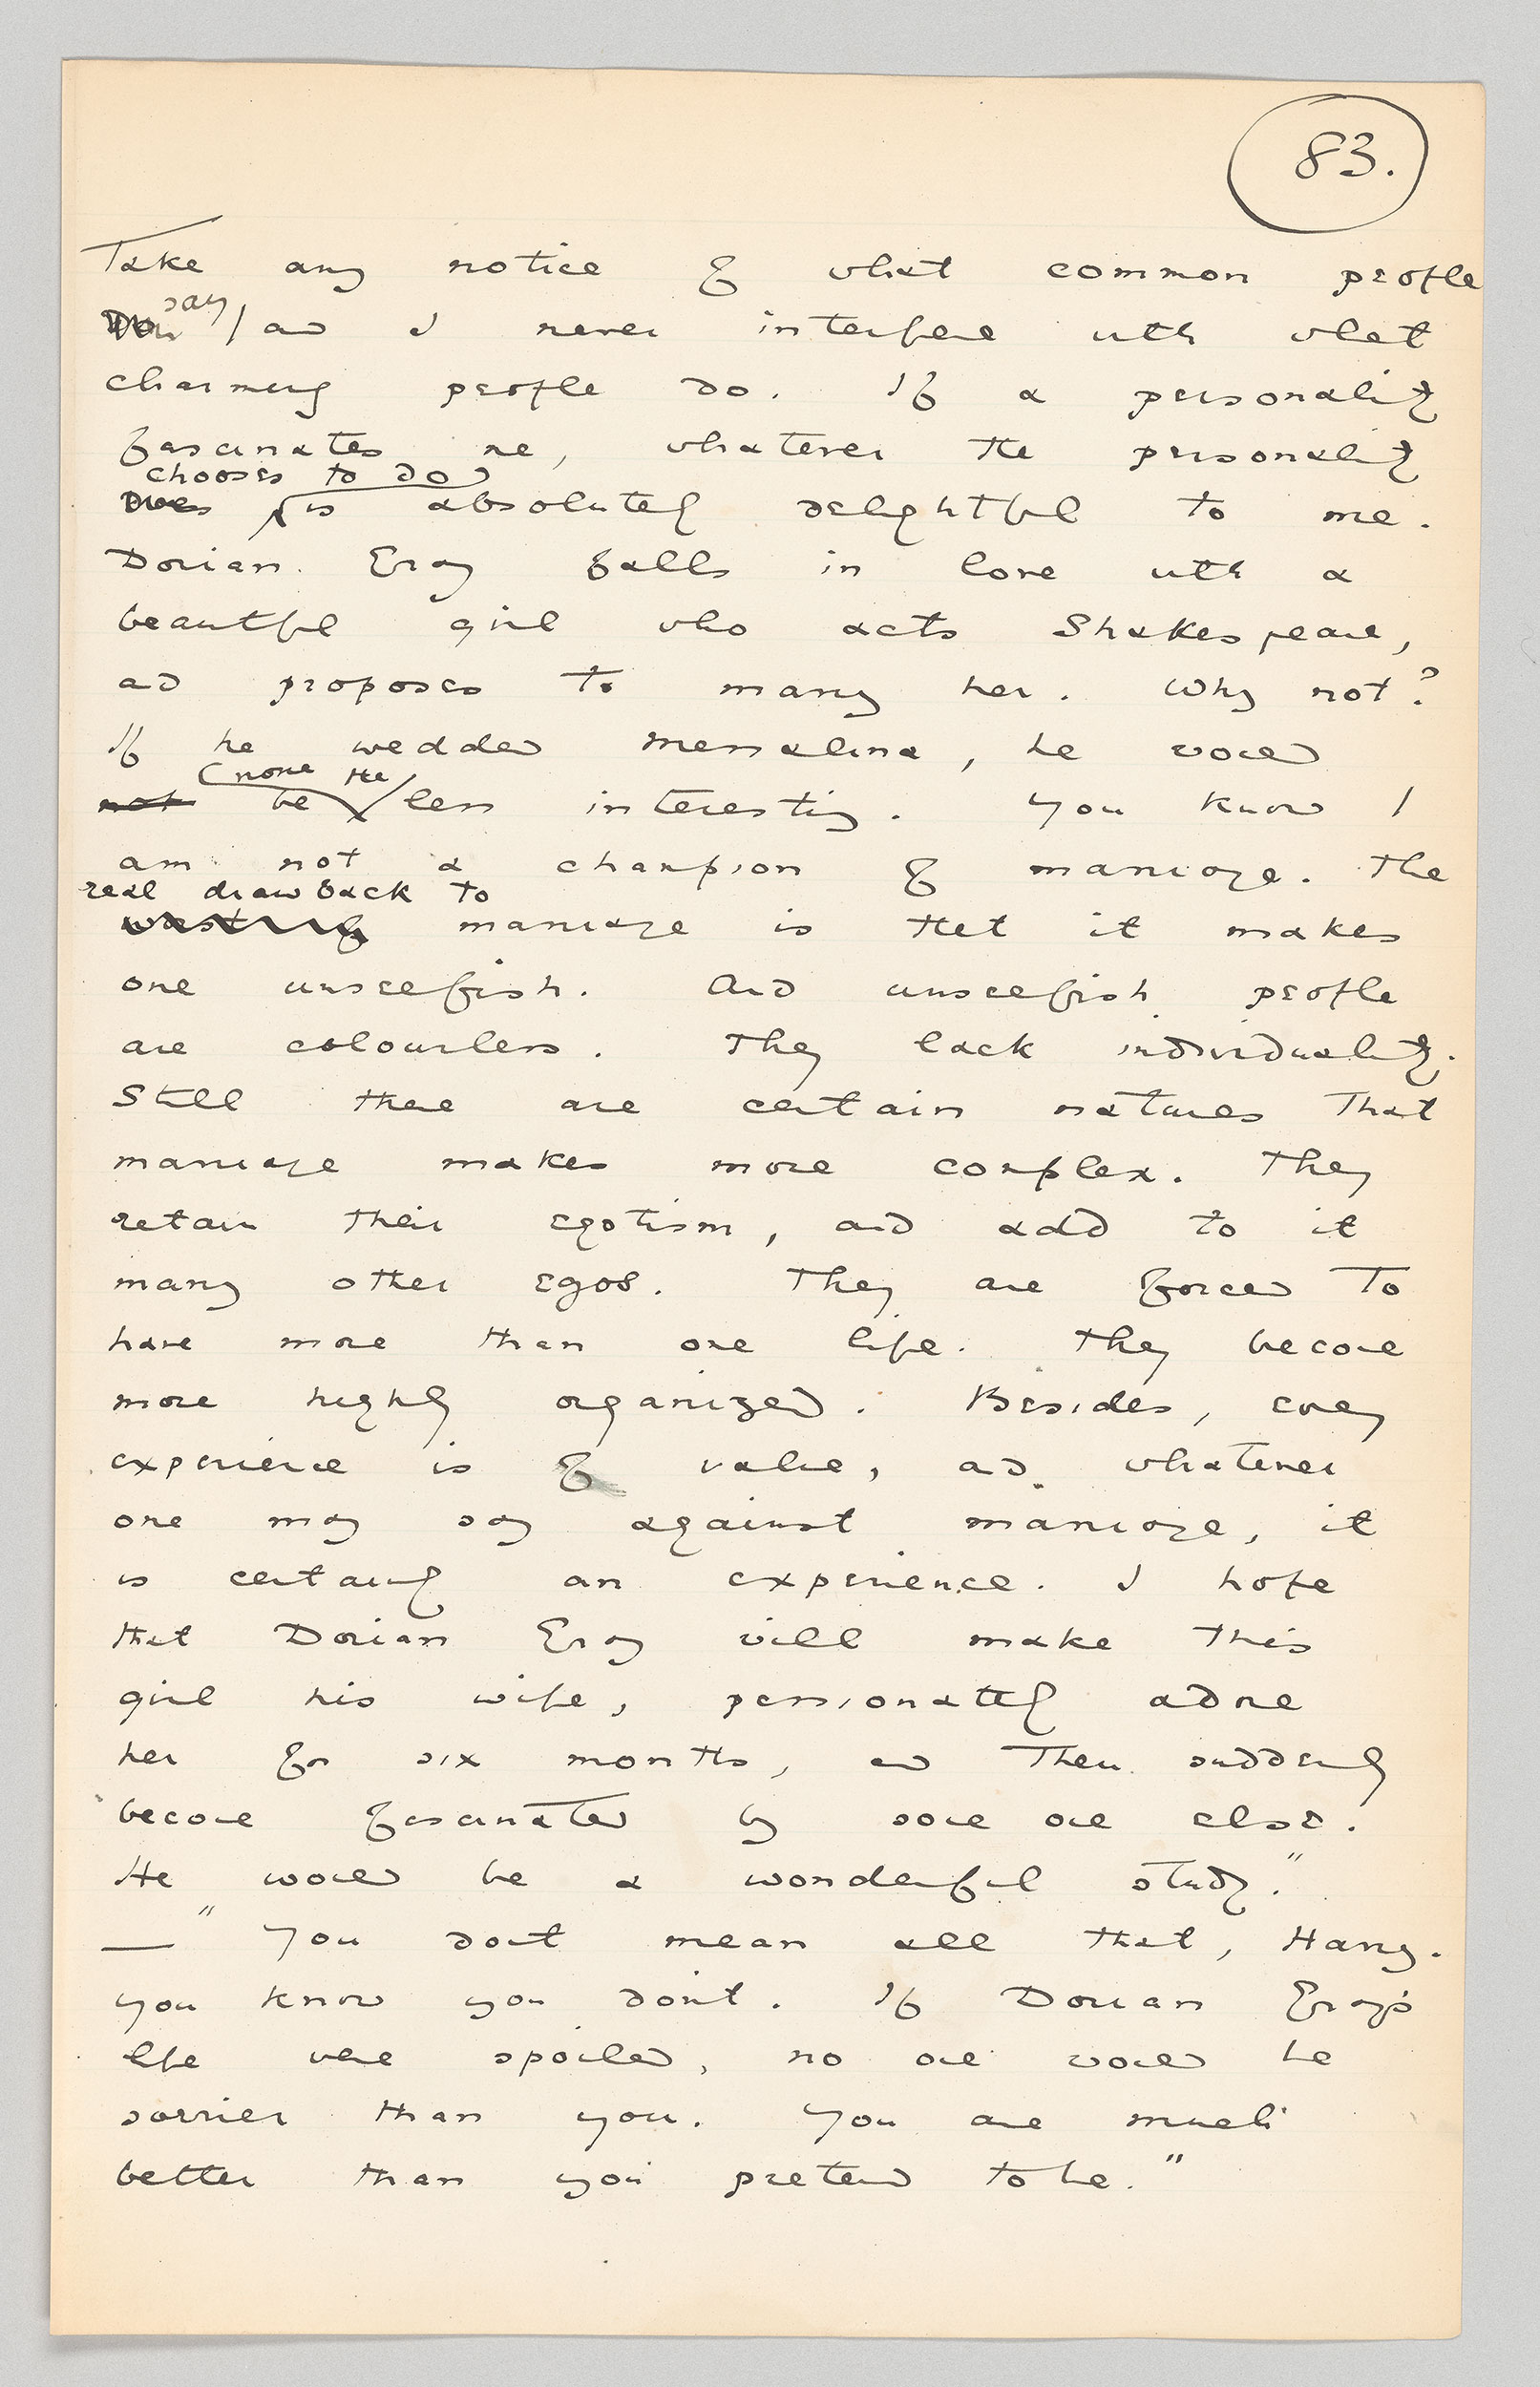 83.
Take any notice of what common people
say / and I never interfere with what
charming people do. If a personality
fascinates me, whatever the personality
chooses to do
does is absolutely delightful to me.
Dorian Gray falls in love with a
beautiful girl who acts Shakespeare,
and proposes to marry her. Why not?
If he wedded Messalina, he would
none the
not be less interesting. You know I
am not a champion of marriage. The
real drawback to
marriage is that it makes
one unselfish. And unselfish people
are colourless. They lack individuality.
Still there are certain natures that
marriage makes more complex. They
retain their egotism, and add to it
many other egos. They are forced to
have more than one life. They become
more highly organized. Besides, every
experience is of value, and whatever
one may say against marriage, it
is certainly an experience. I hope
that Dorian Gray will make this
girl his wife, passionately adore
her for six months, and then suddenly
become fascinated by some one else.
He would be a wonderful study."
— "You don't mean all that, Harry.
you know you don't. If Dorian Gray's
life were spoiled, no one would be
sorrier than you. You are much
better than you pretend to be."